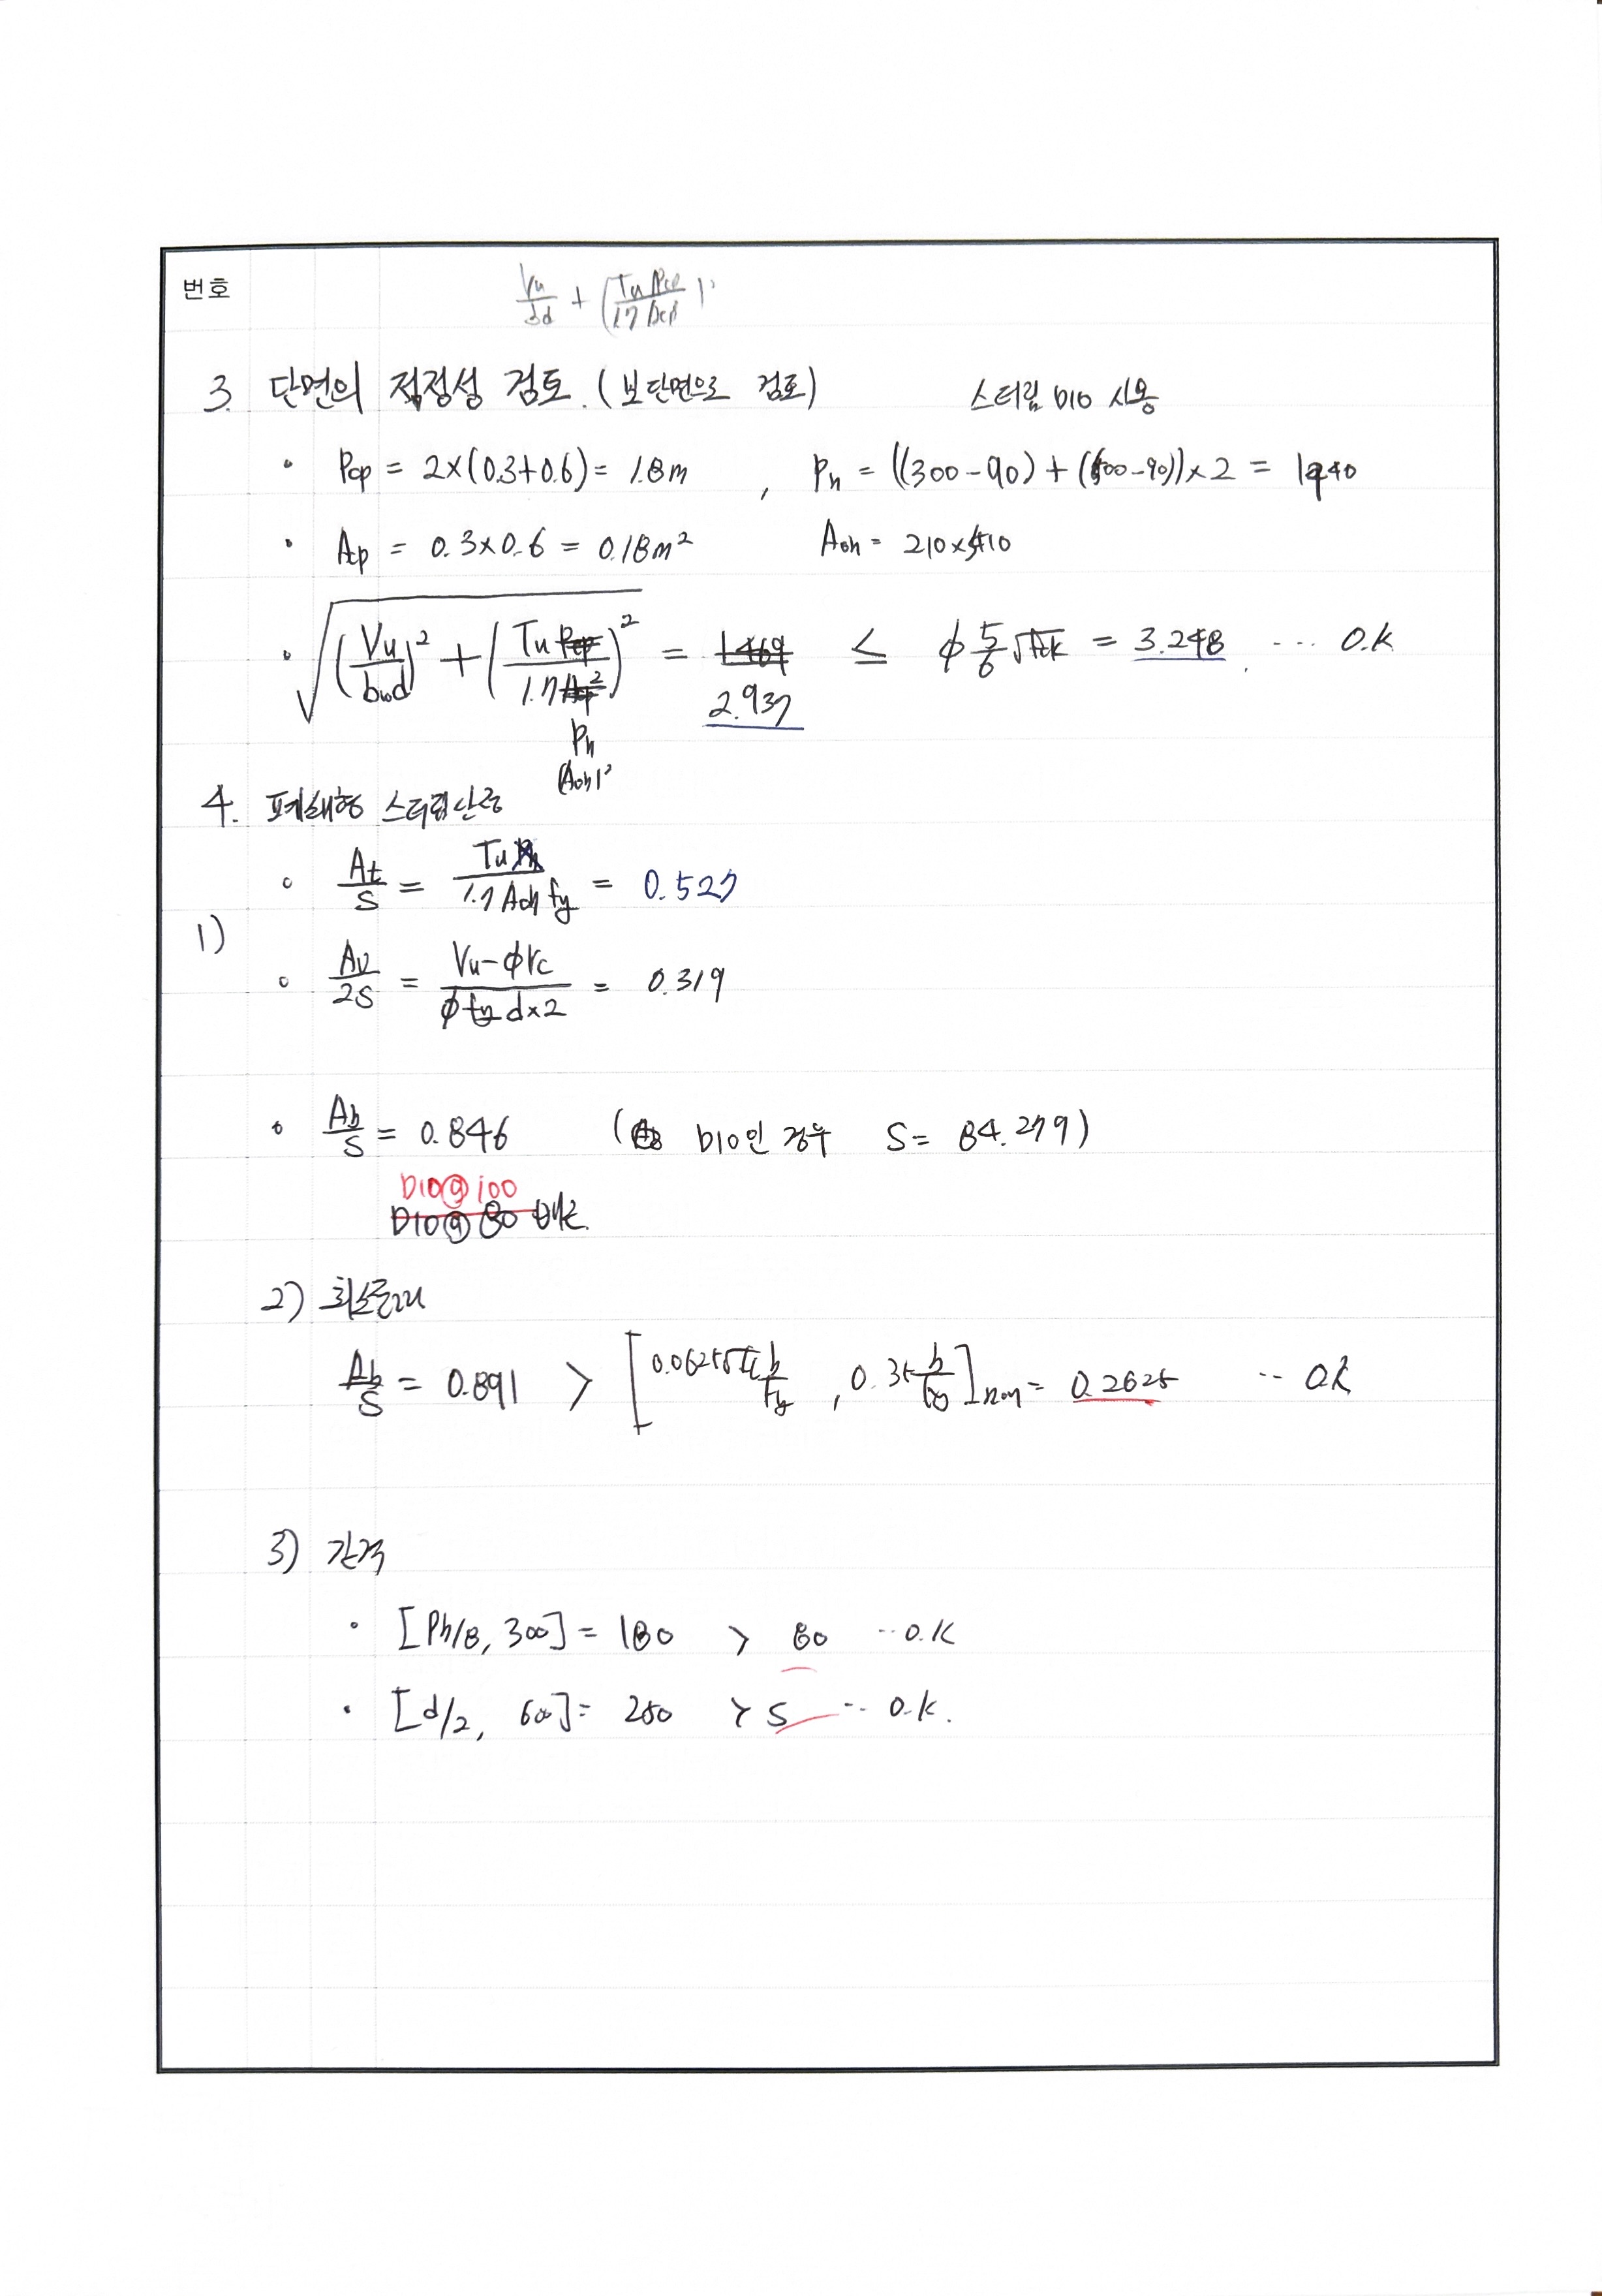 번호
Vu/bd + (Tu Pcp/1.7 Acp)²
3. 단면의 적정성 검토. (보 단면으로 검토) 스터럽 D10 사용
• Pcp = 2×(0.3+0.6) = 1.8m , Ph = ((300-90)+(600-90))×2 = 1440
• Acp = 0.3×0.6 = 0.18m² Aoh = 210×510
• √((Vu/bwd)² + (Tu Pcp/1.7Acp²)²) = 1.469 ≤ φ 5/6 √fck = 3.248 ... O.K
2.937
Ph
(Aoh)²
4. 폐쇄형 스터럽 산정
∘ At/S = Tu/1.7 Aoh fy = 0.527
1)
∘ Av/2S = Vu-φVc/φ fy d×2 = 0.319
∘ Ab/S = 0.846 ( D10인 경우 S= 84.279)
D10@100
D10@80 배근.
2) 최소철근
Ab/S = 0.891 > [0.0625√fck b/fy , 0.35 b/fy]max = 0.2625 ·· O.K
3) 간격
• [Ph/8, 300] = 180 > 80 ·· O.K
• [d/2, 600] = 250 > S ·· O.K.